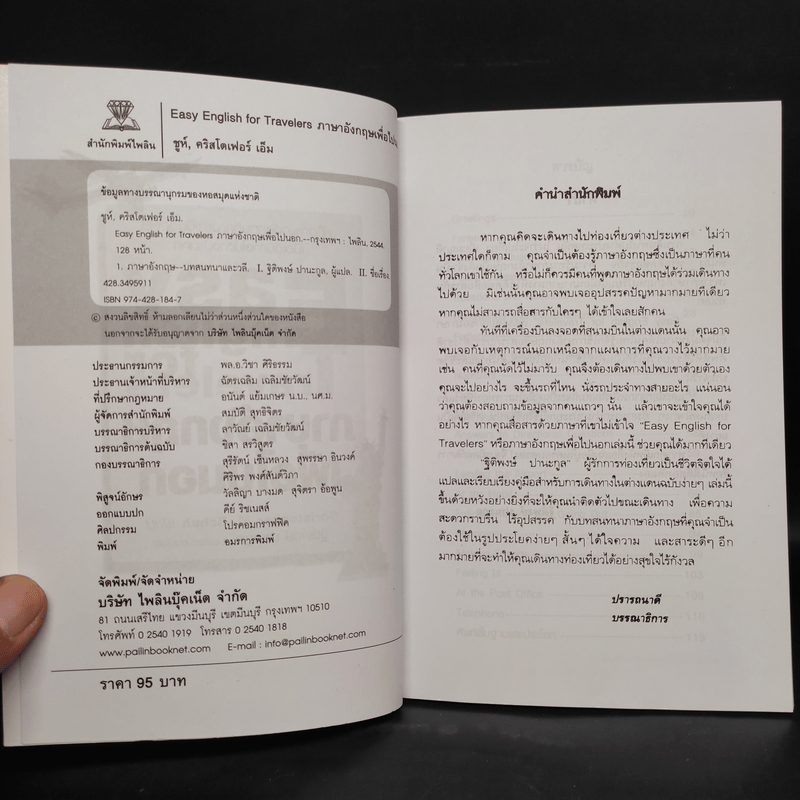 สำนักพิมพ์ไพลิน
Easy English for Travelers ภาษาอังกฤษเพื่อไปนอก
ชูห์, คริสโตเฟอร์ เอ็ม
ข้อมูลทางบรรณานุกรมของหอสมุดแห่งชาติ
ชูห์, คริสโตเฟอร์ เอ็ม.
Easy English for Travelers ภาษาอังกฤษเพื่อไปนอก.--กรุงเทพฯ : ไพลิน, 2544.
128 หน้า.
1. ภาษาอังกฤษ--บทสนทนาและวลี. I. ฐิติพงษ์ ปานะกูล, ผู้แปล. II. ชื่อเรื่อง.
428.3495911
ISBN 974-428-184-7
© สงวนลิขสิทธิ์ ห้ามลอกเลียนไม่ว่าส่วนหนึ่งส่วนใดของหนังสือ
นอกจากจะได้รับอนุญาตจาก บริษัท ไพลินบุ๊คเน็ต จำกัด
ประธานกรรมการ พล.อ.วิชา ศิริธรรม
ประธานเจ้าหน้าที่บริหาร ฉัตรเฉลิม เฉลิมชัยวัฒน์
ที่ปรึกษากฎหมาย อนันต์ แย้มเกษร น.บ., นศ.ม.
ผู้จัดการสำนักพิมพ์ สมบัติ สุทธิจิตร
บรรณาธิการบริหาร ลาวัณย์ เฉลิมชัยวัฒน์
บรรณาธิการต้นฉบับ ชิสา สรวิสูตร
กองบรรณาธิการ สุรีรัตน์ เซ็นหลวง สุพรรษา อินวงค์
ศิริพร พงศ์สันติวิภา
พิสูจน์อักษร วัลลิญา บางมด สุจิตรา อ้อพูน
ออกแบบปก คีย์ ริชเนสส์
ศิลปกรรม โปรคอมกราฟฟิค
พิมพ์ อมรการพิมพ์
จัดพิมพ์/จัดจำหน่าย
บริษัท ไพลินบุ๊คเน็ต จำกัด
81 ถนนเสรีไทย แขวงมีนบุรี เขตมีนบุรี กรุงเทพฯ 10510
โทรศัพท์ 0 2540 1919 โทรสาร 0 2540 1818
www.pailinbooknet.com E-mail : info@pailinbooknet.com
ราคา 95 บาท
คำนำสำนักพิมพ์
หากคุณคิดจะเดินทางไปท่องเที่ยวต่างประเทศ ไม่ว่า
ประเทศใดก็ตาม คุณจำเป็นต้องรู้ภาษาอังกฤษซึ่งเป็นภาษาที่คน
ทั่วโลกเขาใช้กัน หรือไม่ก็ควรมีคนที่พูดภาษาอังกฤษได้ร่วมเดินทาง
ไปด้วย มิเช่นนั้นคุณอาจพบเจออุปสรรคปัญหามากมายทีเดียว
หากคุณไม่สามารถสื่อสารกับใครๆ ได้เข้าใจเลยสักคน
ทันทีที่เครื่องบินลงจอดที่สนามบินในต่างแดนนั้น คุณอาจ
พบเจอกับเหตุการณ์นอกเหนือจากแผนการที่คุณวางไว้มากมาย
เช่น คนที่คุณนัดไว้ไม่มารับ คุณจึงต้องเดินทางไปพบเขาด้วยตัวเอง
คุณจะไปอย่างไร จะขึ้นรถที่ไหน นั่งรถประจำทางสายอะไร แน่นอน
ว่าคุณต้องสอบถามข้อมูลจากคนแถวๆ นั้น แล้วเขาจะเข้าใจคุณได้
อย่างไร หากคุณสื่อสารด้วยภาษาที่เขาไม่เข้าใจ "Easy English for
Travelers" หรือภาษาอังกฤษเพื่อไปนอกเล่มนี้ ช่วยคุณได้มากทีเดียว
"ฐิติพงษ์ ปานะกูล" ผู้รักการท่องเที่ยวเป็นชีวิตจิตใจได้
แปลและเรียบเรียงคู่มือสำหรับการเดินทางในต่างแดนฉบับง่ายๆ เล่มนี้
ขึ้นด้วยหวังอย่างยิ่งที่จะให้คุณนำติดตัวไปขณะเดินทาง เพื่อความ
สะดวกราบรื่น ไร้อุปสรรค กับบทสนทนาภาษาอังกฤษที่คุณจำเป็น
ต้องใช้ในรูปประโยคง่ายๆ สั้นๆ ได้ใจความ และสาระดีๆ อีก
มากมายที่จะทำให้คุณเดินทางท่องเที่ยวได้อย่างสุขใจไร้กังวล
ปรารถนาดี
บรรณาธิการ